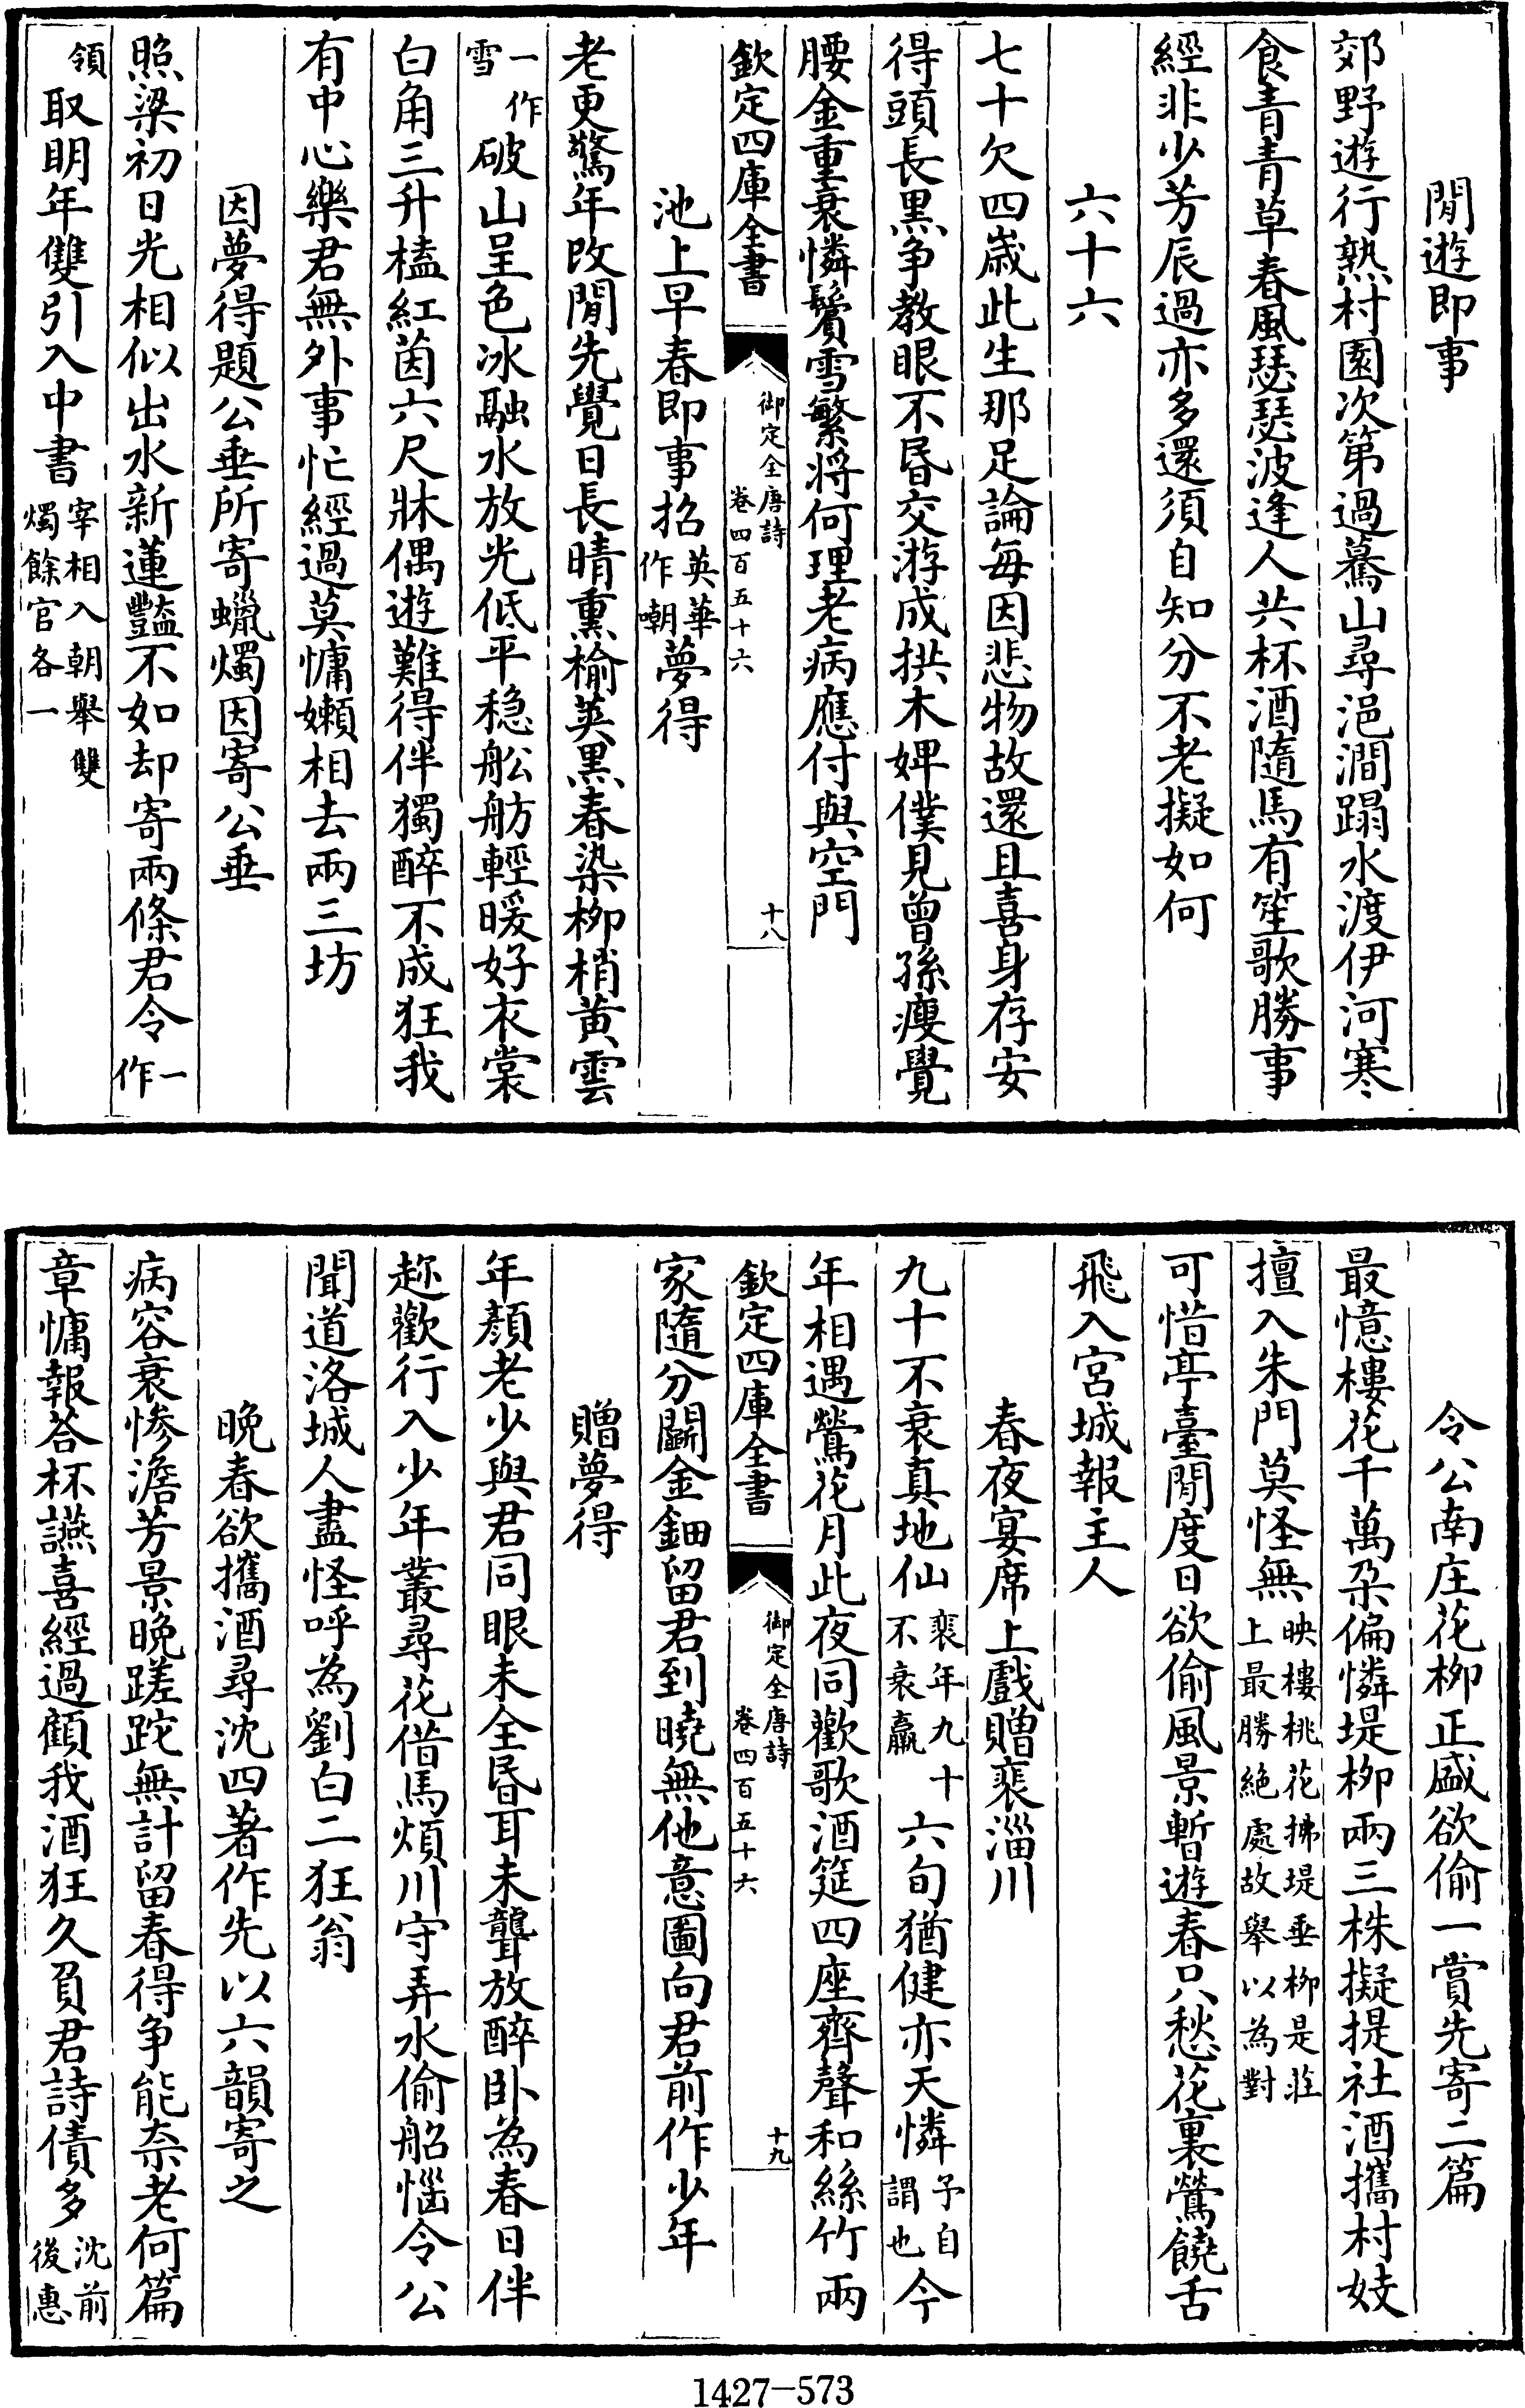 閒遊即事
郊野遊行熟村園次第過驀山尋浥澗蹋水渡伊河寒
食青青草春風瑟瑟波逢人共杯酒隨馬有笙歌勝事
經非少芳辰過亦多還須自知分不老擬如何
六十六
七十欠四歲此生那足論每因悲物故還且喜身存安
得頭長黑争教眼不昏交游成拱木婢僕見曾孫瘦覺
腰金重衰憐鬢雪繁將何理老病應付與空門
欽定四庫全書
御定全唐詩
卷四百五十六
十八
池上早春即事招英華作嘲夢得
老更驚年改閒先覺日長晴熏榆莢黒春染柳梢黄雲
一作雪破山呈色冰融水放光低平穏舩舫輕暖好衣裳
白角三升榼紅茵六尺牀偶遊難得伴獨醉不成狂我
有中心樂君無外事忙經過莫慵嬾相去兩三坊
因夢得題公垂所寄蠟燭因寄公垂
照梁初日光相似出水新蓮豔不如却寄兩條君令一作
領取明年雙引入中書宰相入朝舉雙燭餘官各一
令公南庄花柳正盛欲偷一賞先寄二篇
最憶樓花千萬朶偏憐堤柳兩三株擬提社酒攜村妓
擅入朱門莫怪無映樓桃花拂堤垂柳是莊上最勝絶處故舉以為對
可惜亭臺閒度日欲偷風景暫遊春只愁花裏鶯饒舌
飛入宮城報主人
春夜宴席上戲贈裴淄川
九十不衰真地仙裴年九十不衰羸六旬猶健亦天憐予自謂也今
年相遇鶯花月此夜同歡歌酒筵四座齊聲和絲竹兩
欽定四庫全書
御定全唐詩
卷四百五十六
十九
家隨分鬬金鈿留君到曉無他意圖向君前作少年
贈夢得
年顏老少與君同眼未全昏耳未聾放醉卧為春日伴
趂歡行入少年叢尋花借馬煩川守弄水偷船惱令公
聞道洛城人盡怪呼為劉白二狂翁
晚春欲攜酒尋沈四著作先以六韻寄之
病容衰惨澹芳景晚蹉跎無計留春得争能奈老何篇
章慵報荅杯讌喜經過顧我酒狂久負君詩債多沈前後惠
1427-573